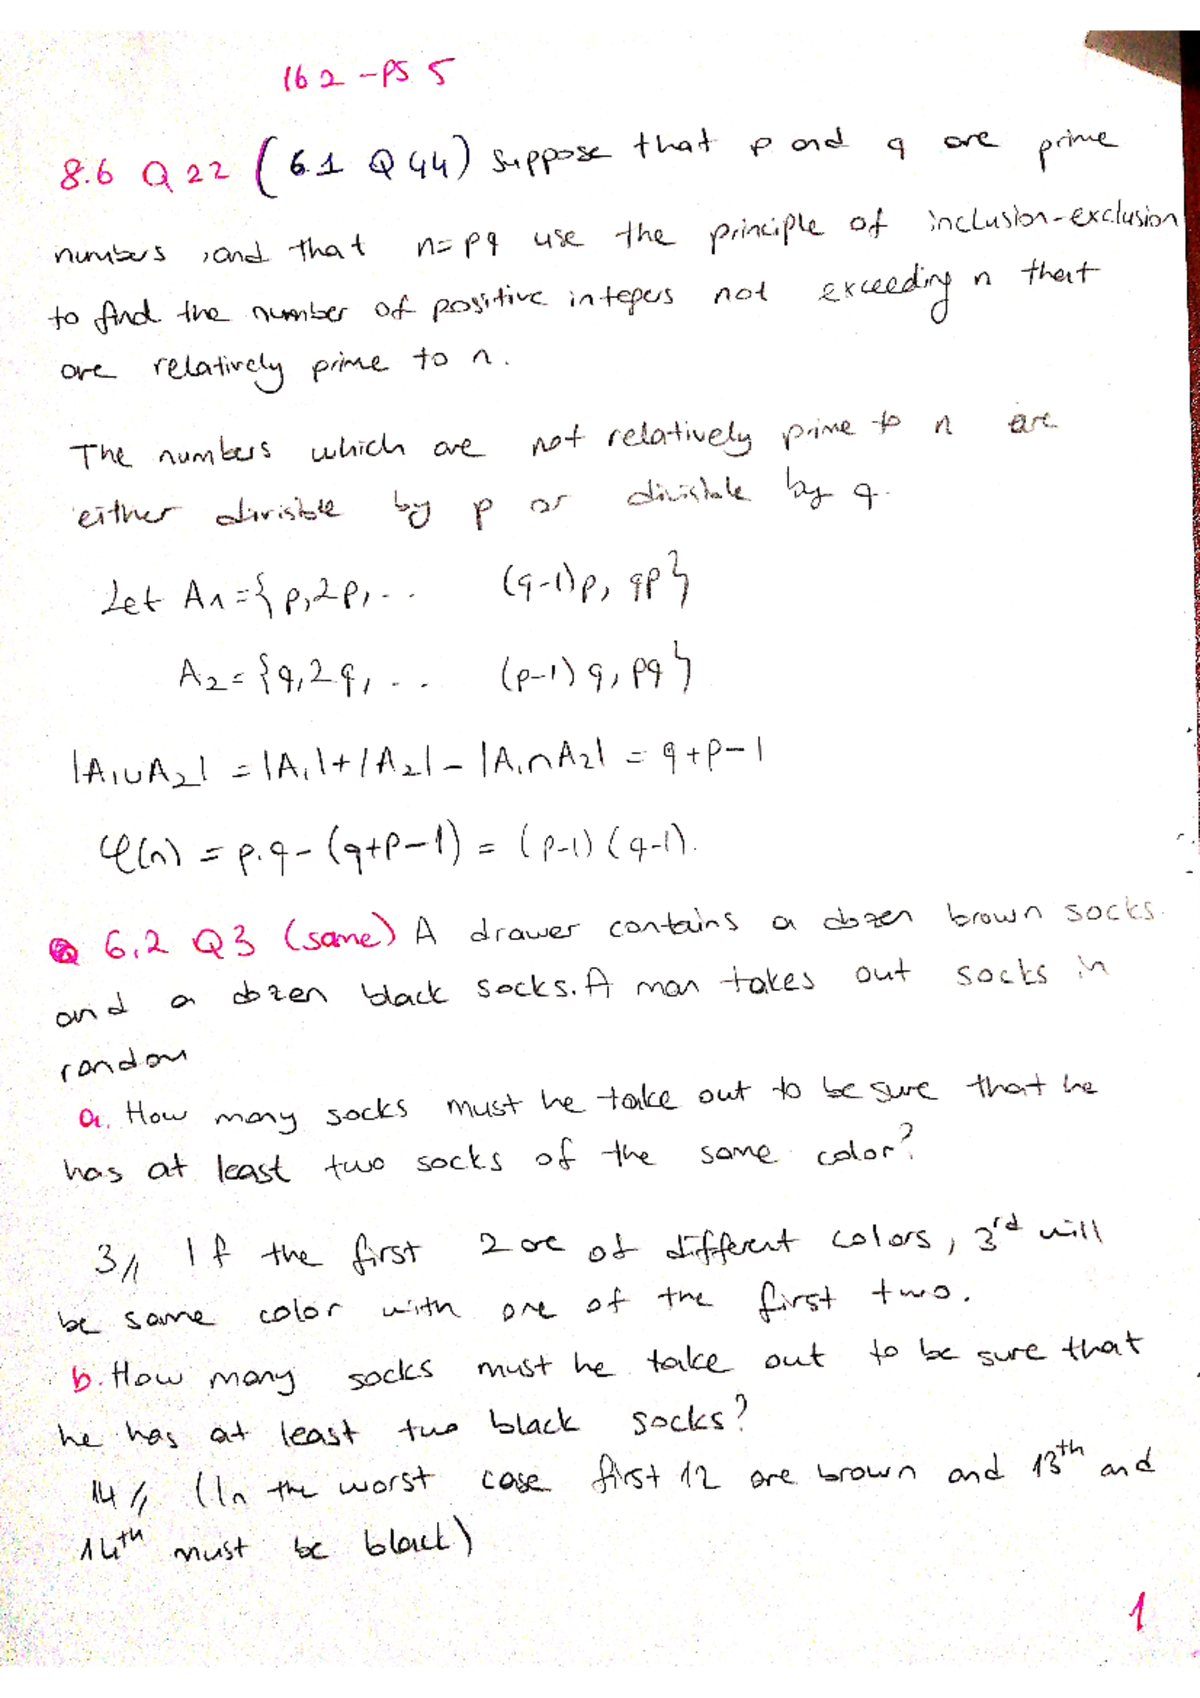 162 - PS 5
8.6 Q 22 (6.1 Q 44) suppose that p and q are prime
numbers, and that n=pq use the principle of inclusion-exclusion
to find the number of positive integers not exceeding n that
are relatively prime to n.
The numbers which are not relatively prime to n are
either divisible by p or divisible by q.
Let A1={p,2p,.. (q-1)p, qp}
A2={q,2q,.. (p-1)q, pq}
|A1∪A2| = |A1|+|A2|-|A1∩A2| = q+p-1
φ(n) = p.q-(q+p-1) = (p-1)(q-1).
6.2 Q3 (same) A drawer contains a dozen brown socks
and a dozen black socks. A man takes out socks in
random
a. How many socks must he take out to be sure that he
has at least two socks of the same color?
3// If the first 2 are of different colors, 3rd will
be same color with one of the first two.
b. How many socks must he take out to be sure that
he has at least two black socks?
14// (In the worst case first 12 are brown and 13th and
14th must be black)
1